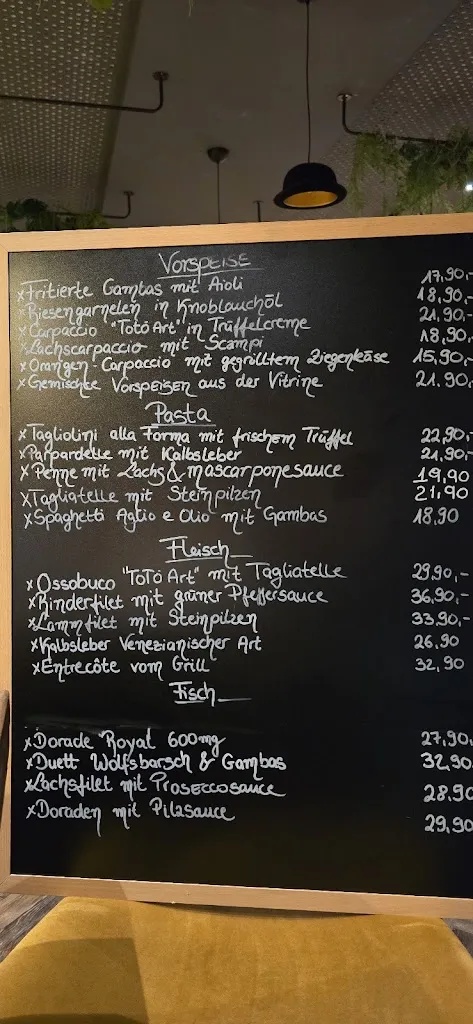 Vorspeise
x Fritierte Gambas mit Aioli 17,90,-
x Riesengarnelen in Knoblauchöl 18,90,-
x Carpaccio "Totó Art" in Trüffelcreme 21,90,-
x Lachscarpaccio mit Scampi 18,90,-
x Orangen-Carpaccio mit gegrilltem Ziegenkäse 15,90,-
x Gemischte Vorspeisen aus der Vitrine 21.90,-
Pasta
x Tagliolini alla Forma mit frischem Trüffel 22,90,-
x Pappardelle mit Kalbsleber 21,90,-
x Penne mit Lachs & mascarponesauce 19,90
x Tagliatelle mit Steinpilzen 21,90
x Spaghetti Aglio e Olio mit Gambas 18,90
Fleisch
x Ossobuco "Totó Art" mit Tagliatelle 29,90,-
x Rinderfilet mit grüner Pfeffersauce 36,90,-
x Lammfilet mit Steinpilzen 33,90,-
x Kalbsleber Venezianischer Art 26,90
x Entrecôte vom Grill 32,90
Fisch
x Dorade Royal 600mg 27,90,-
x Duett Wolfsbarsch & Gambas 32,90
x Lachsfilet mit Proseccosauce 28,90
x Doraden mit Pilzsauce 29,90